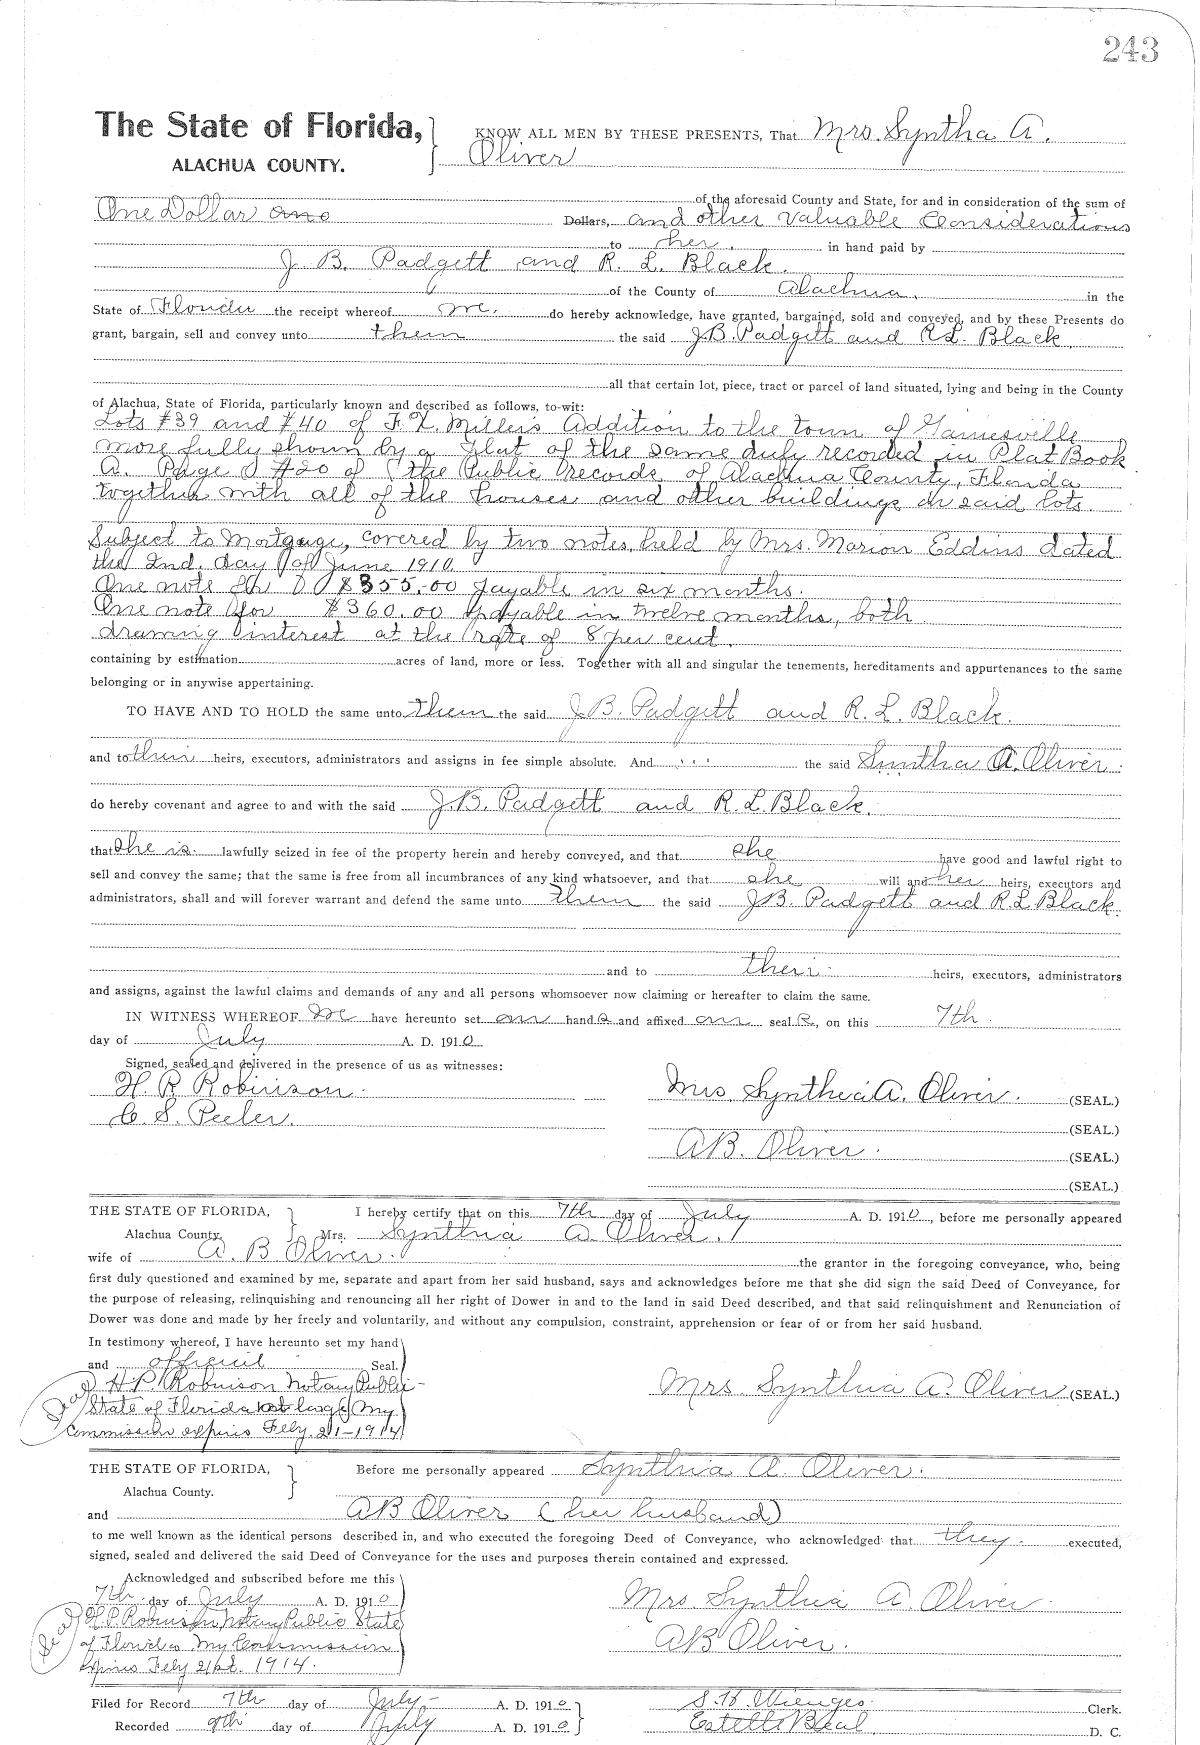 243
The State of Florida, } KNOW ALL MEN BY THESE PRESENTS, That Mrs. Syntha A.
ALACHUA COUNTY. Oliver
of the aforesaid County and State, for and in consideration of the sum of
One Dollar and Dollars, and other valuable Considerations
to her. in hand paid by
J. B. Padgett and R. L. Black.
of the County of Alachua, in the
State of Florida the receipt whereof we. do hereby acknowledge, have granted, bargained, sold and conveyed, and by these Presents do
grant, bargain, sell and convey unto them the said J.B. Padgett and R.L. Black
all that certain lot, piece, tract or parcel of land situated, lying and being in the County
of Alachua, State of Florida, particularly known and described as follows, to-wit:
Lots #39 and #40 of F. X. Miller's Addition to the town of Gainesville
more fully shown by a Plat of the same duly recorded in Plat Book
A. Page #20 of the Public records of Alachua County, Florida
together with all of the houses and other buildings on said lots
Subject to Mortgage, covered by two notes, held by Mrs. Marion Eddins dated
the 2nd. day of June 1910.
One note for $355.00 payable in six months.
One note for $360.00 payable in twelve months, both
drawing interest at the rate of 8 per cent.
containing by estimation acres of land, more or less. Together with all and singular the tenements, hereditaments and appurtenances to the same
belonging or in anywise appertaining.
TO HAVE AND TO HOLD the same unto them the said J.B. Padgett and R. L. Black.
and to their heirs, executors, administrators and assigns in fee simple absolute. And the said Syntha A. Oliver.
do hereby covenant and agree to and with the said J.B. Padgett and R. L. Black.
that she is lawfully seized in fee of the property herein and hereby conveyed, and that she have good and lawful right to
sell and convey the same; that the same is free from all incumbrances of any kind whatsoever, and that she will and her heirs, executors and
administrators, shall and will forever warrant and defend the same unto them the said J.B. Padgett and R.L. Black
and to their heirs, executors, administrators
and assigns, against the lawful claims and demands of any and all persons whomsoever now claiming or hereafter to claim the same.
IN WITNESS WHEREOF we have hereunto set our hands and affixed our seals, on this 7th
day of July A. D. 1910
Signed, sealed and delivered in the presence of us as witnesses:
H. P. Robinson. Mrs. Synthia A. Oliver. (SEAL.)
C. S. Peeler. (SEAL.)
A B. Oliver. (SEAL.)
(SEAL.)
THE STATE OF FLORIDA, } I hereby certify that on this 7th day of July A. D. 1910, before me personally appeared
Alachua County. Mrs. Synthia A. Oliver,
wife of A. B Oliver. the grantor in the foregoing conveyance, who, being
first duly questioned and examined by me, separate and apart from her said husband, says and acknowledges before me that she did sign the said Deed of Conveyance, for
the purpose of releasing, relinquishing and renouncing all her right of Dower in and to the land in said Deed described, and that said relinquishment and Renunciation of
Dower was done and made by her freely and voluntarily, and without any compulsion, constraint, apprehension or fear of or from her said husband.
In testimony whereof, I have hereunto set my hand
and official Seal.
Seal H. P. Robinson Notary Public Mrs Synthia A. Oliver (SEAL.)
State of Florida at large My
Commission expires Feby. 21-1914
THE STATE OF FLORIDA, } Before me personally appeared Synthia A. Oliver.
Alachua County.
and A B Oliver (her husband)
to me well known as the identical persons described in, and who executed the foregoing Deed of Conveyance, who acknowledged that they executed,
signed, sealed and delivered the said Deed of Conveyance for the uses and purposes therein contained and expressed.
Acknowledged and subscribed before me this
7th day of July A. D. 1910 Mrs Synthia A. Oliver.
Seal H. P. Robinson, Notary Public State
of Florida My Commission A B Oliver.
expires Feby 21st. 1914.
Filed for Record 7th day of July A. D. 1910 S. H. Wienges. Clerk.
Recorded 9th day of July A. D. 1910 Estelle Beal. D. C.